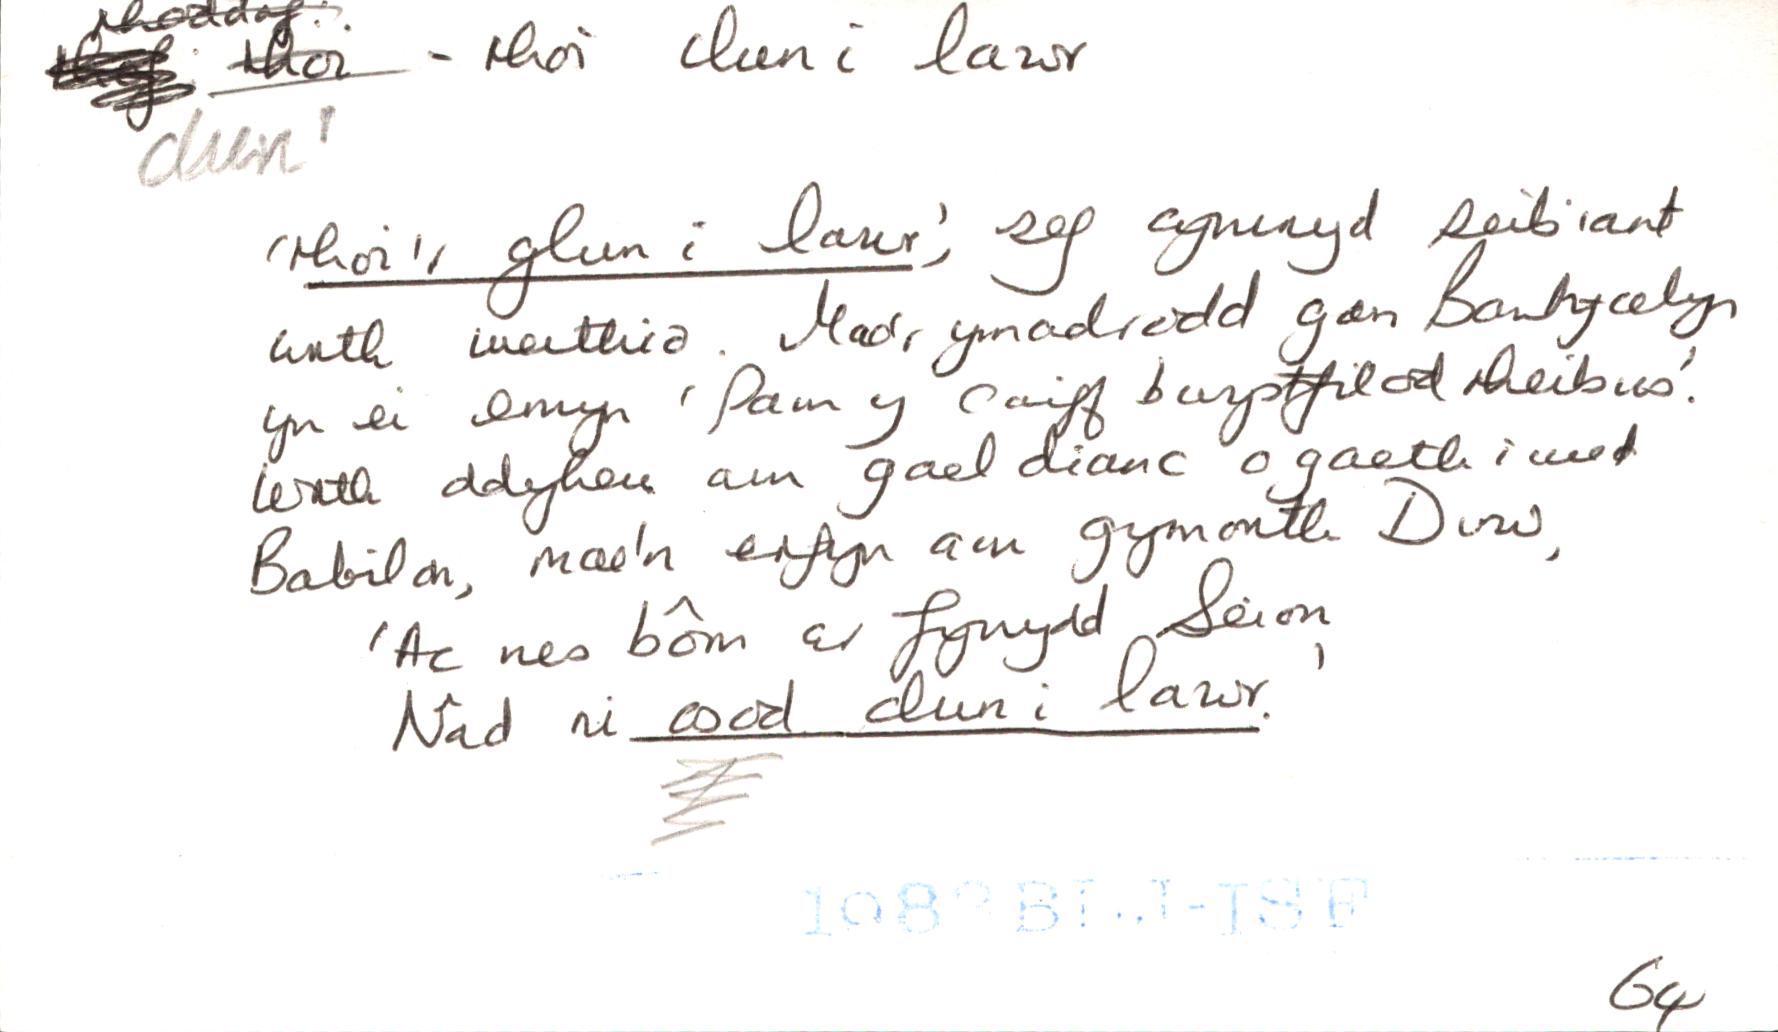 rhoddaf:
rhoi - rhoi clun i lawr
clun'
'rhoi'r glun i lawr', sef cymryd seibiant
wrth weithio. Mae'r ymadrodd gan Bantycelyn
yn ei emyn 'Pam y caiff bwystfilod rheibus'.
Wrth ddyheu am gael dianc o gaethiwed
Babilon, mae'n erfyn am gymorth Duw,
'Ac nes bôm ar fynydd Seion
Nad ni osod clun i lawr.'
64